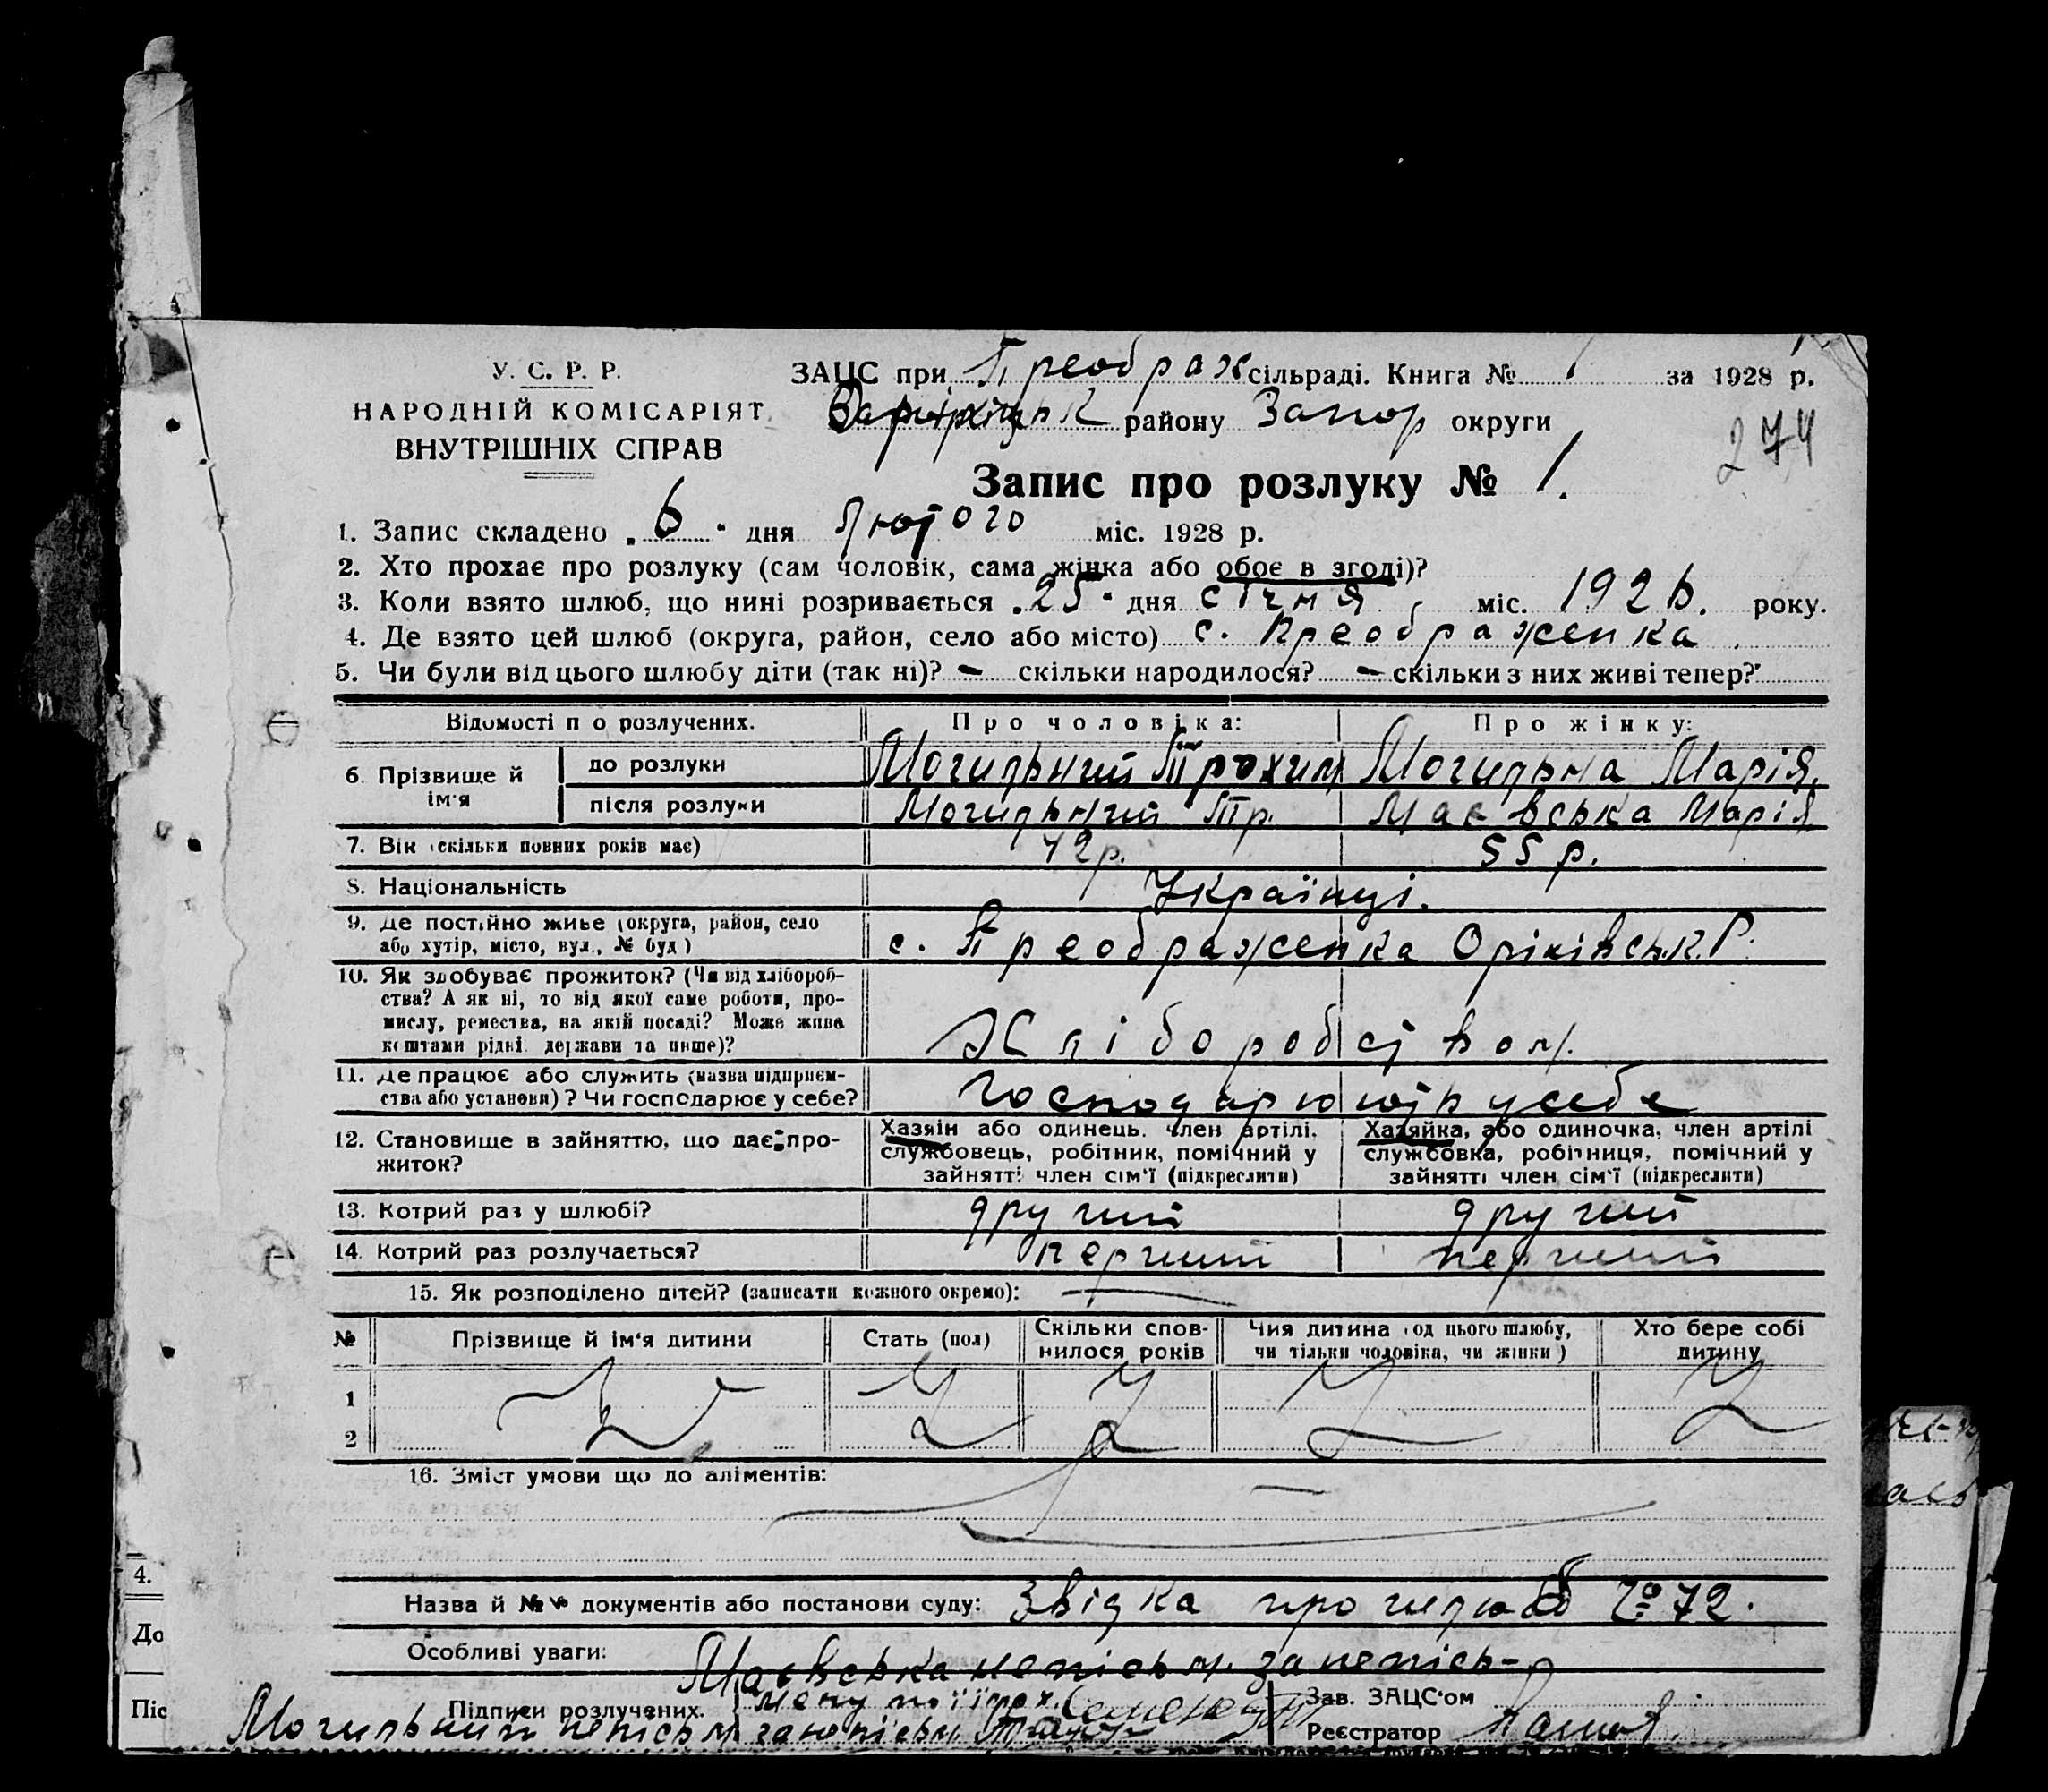 У. С. Р. Р.
НАРОДНІЙ КОМІСАРІЯТ
ВНУТРІШНІХ СПРАВ
ЗАЦС при Преображ сільраді. Книга № 1 за 1928 р.
району Запор округи
274
Запис про розлуку № 1.
1. Запис складено „6" дня Лютого міс. 1928 р.
2. Хто прохає про розлуку (сам чоловік, сама жінка або обоє в згоді)?
3. Коли взято шлюб, що нині розривається „25" дня січня міс. 1926. року.
4. Де взято цей шлюб (округа, район, село або місто) с. Преображенка
5. Чи були від цього шлюбу діти (так ні)? — скільки народилося? — скільки з них живі тепер?
Відомості по розлучених. Про чоловіка: Про жінку:
6. Прізвище й ім'я до розлуки Могильний Трохим Могильна Марія
після розлуки Могильний Тр. Маєвська Марія
7. Вік (скільки повних років має) 72р. 55 р.
8. Національність Українці.
9. Де постійно живе (округа, район, село
або хутір, місто, вул., № буд) с. Преображенка Оріхівськ. Р.
10. Як здобуває прожиток? (Чи від хлібороб-
ства? А як ні, то від якої саме роботи, про-
мислу, ремества, на якій посаді? Може живе
коштами рідні, держави та инше)? Хліборобством.
11. Де працює або служить (назва підприєм-
ства або установи)? Чи господарює у себе? господарюють у себе
12. Становище в зайняттю, що дає про-
житок?
Хазяїн або одинець, член артілі,
службовець, робітник, помічний у
зайнятті член сім'ї (підкреслити)
Хазяйка, або одиночка, член артілі
службовка, робітниця, помічний у
зайнятті член сім'ї (підкреслити)
13. Котрий раз у шлюбі? другий другий
14. Котрий раз розлучається? перший перший
15. Як розподілено дітей? (записати кожного окремо): —
№ Прізвище й ім'я дитини Стать (пол) Скільки спов-
нилося років Чия дитина (од цього шлюбу,
чи тільки чоловіка, чи жінки) Хто бере собі
дитину
1
2
16. Зміст умови що до аліментів: —
Назва й №№ документів або постанови суду: Звідка про шлюб № 72.
Особливі уваги:
Маєвська непісьм. за непісь-
Підписи розлучених. мену по її прох.
Могильний непісьм за непісьм
Зав. ЗАЦС'ом
Реєстратор
4.
До
Піс